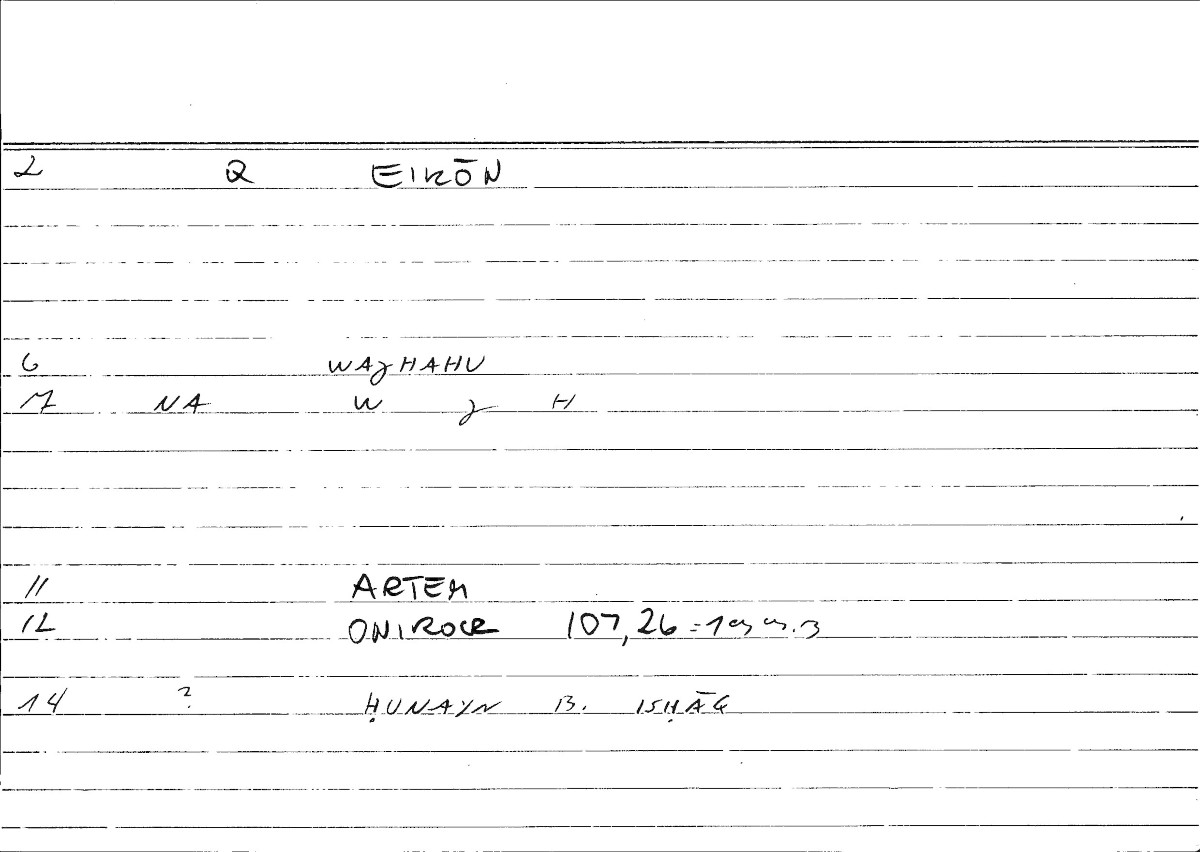 2 Q EIKŌN
6 WAJHAHU
7 NA W J H
11 ARTEM
12 ONIROCR 107,26 =
14 ? ḤUNAYN B. ISḤĀQ